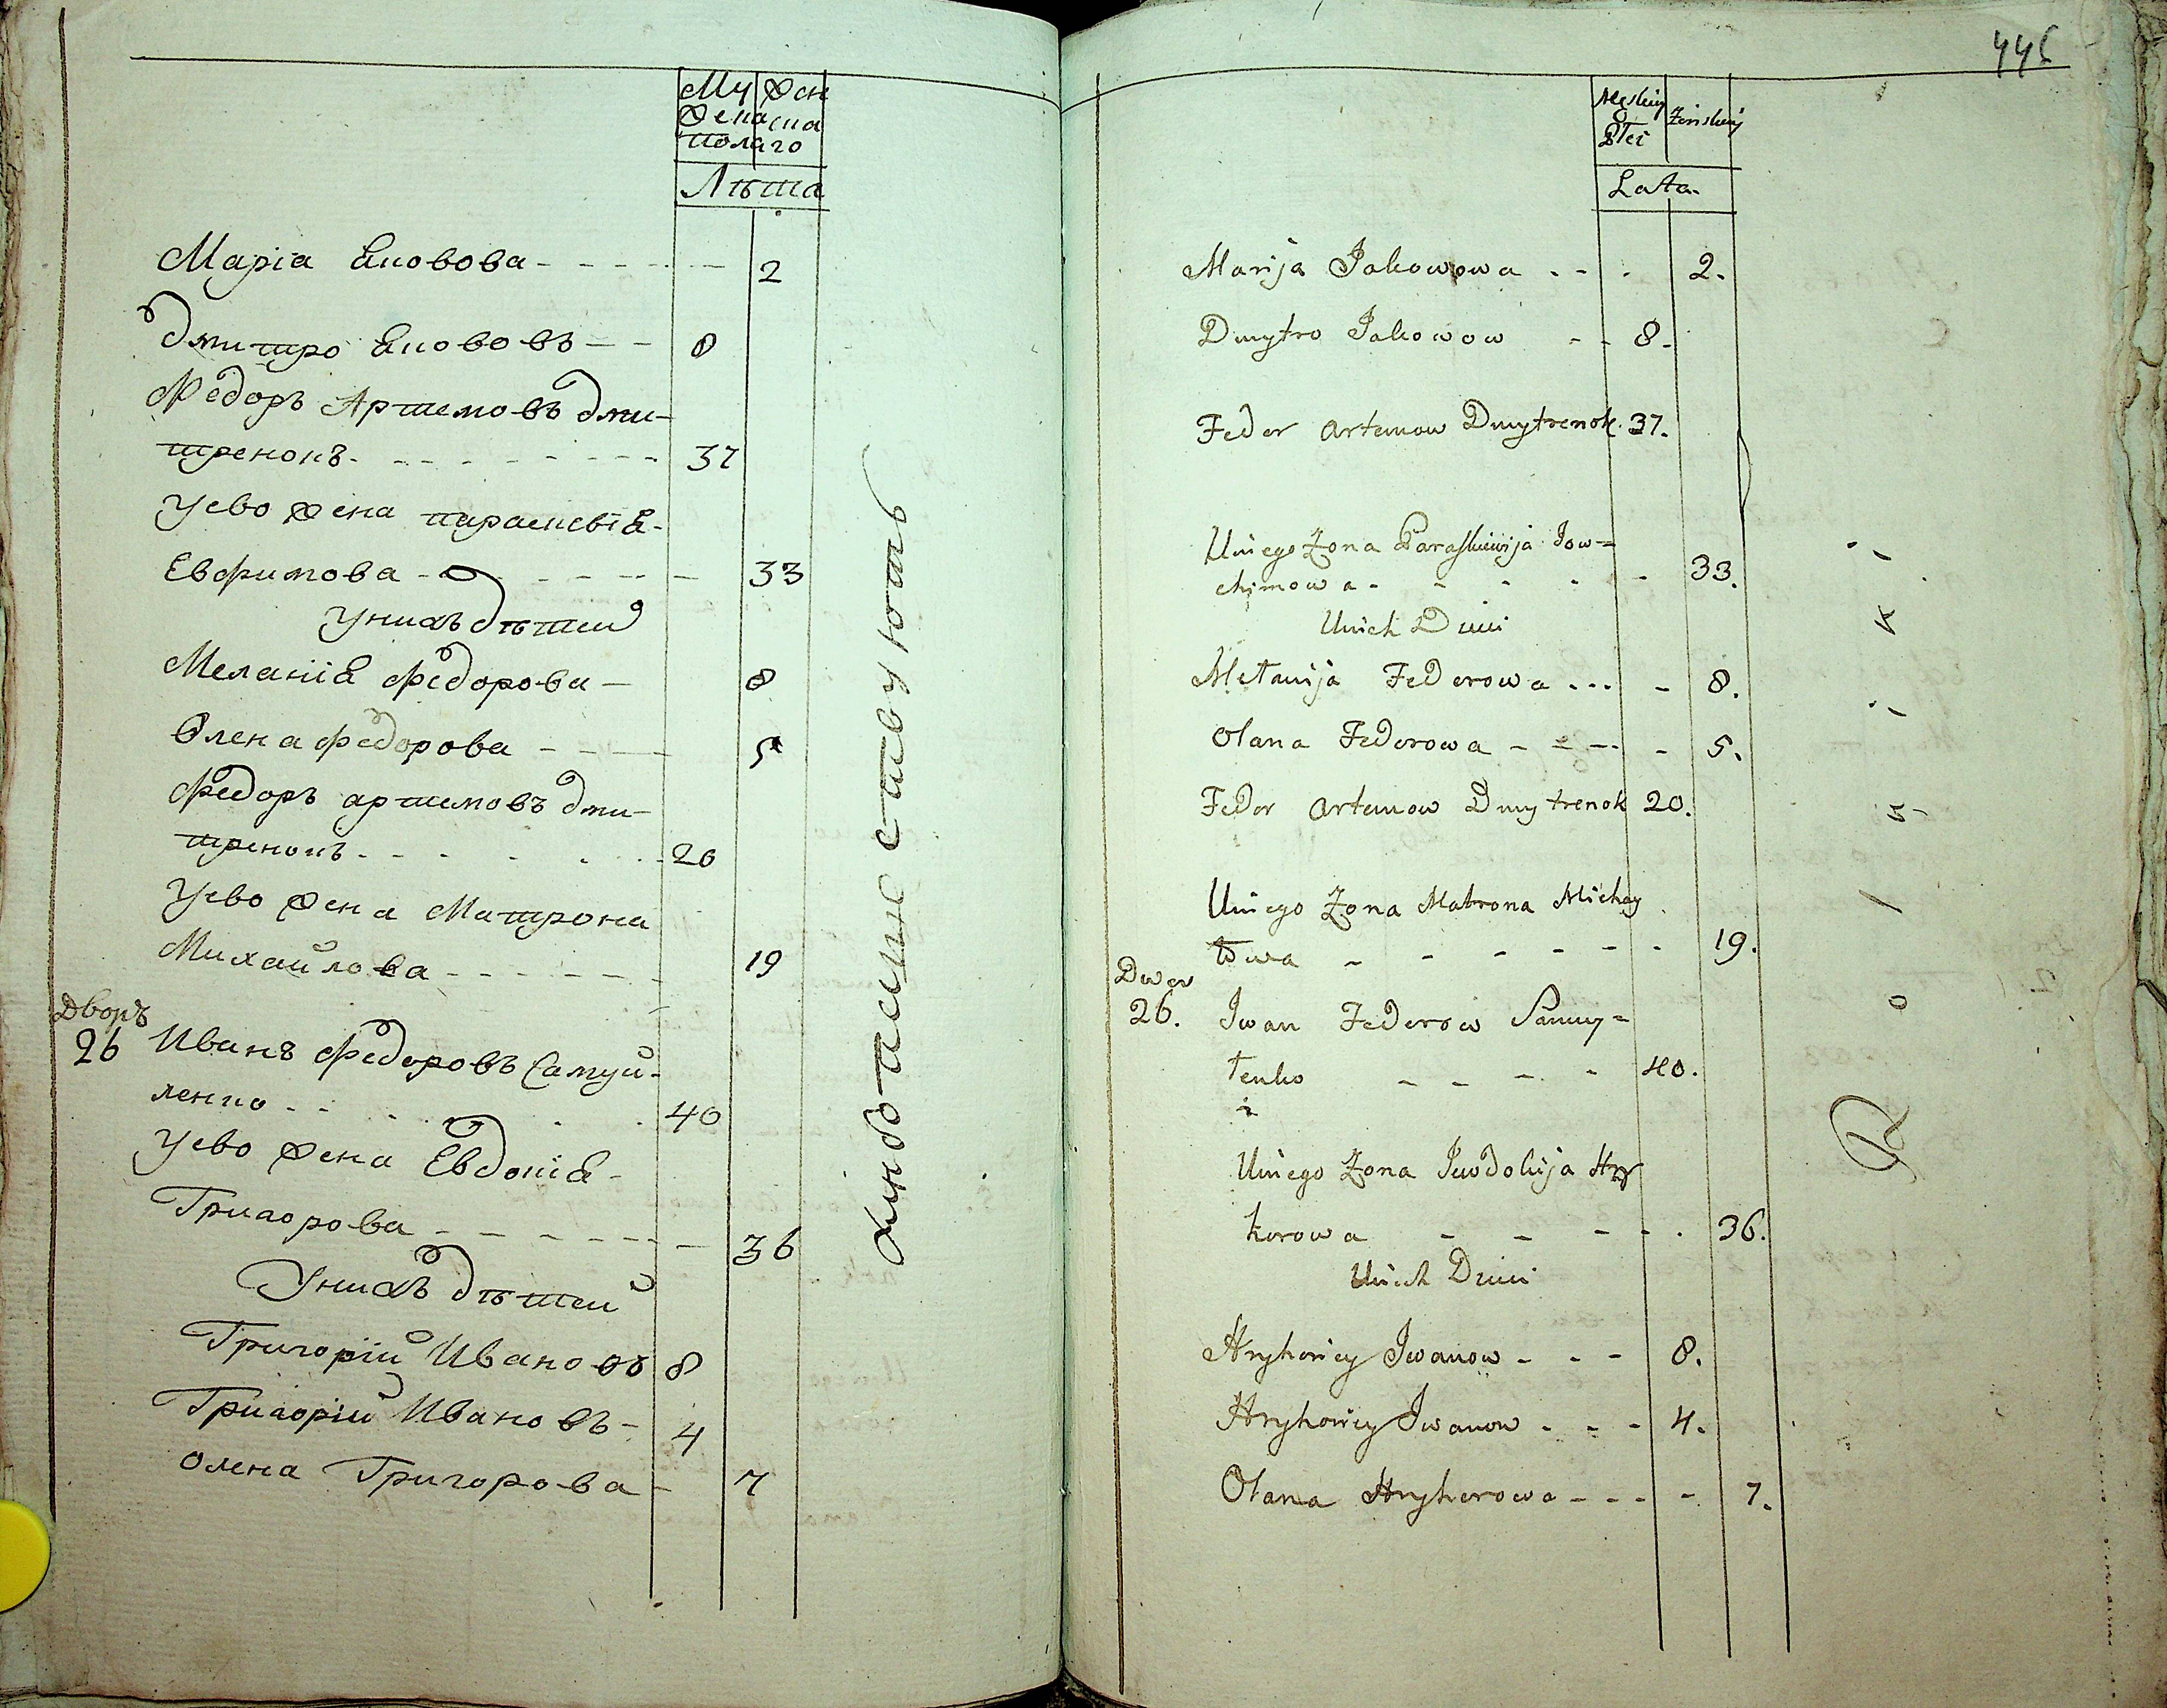 Му Жен
жена ска
полаго
Лѣта
Маріа Яковова - - - - - 2
Дмитро Якововъ - - 8
Федоръ Артемовъ Дми-
тренокъ - - - - - - - 37
Уево жена Параскевія -
Евфимова - - - - - 33
Унихъ дѣтей
Меланія Федорова - 8
Олена Федорова - - - - 5
Федоръ Артемовъ Дми-
тренокъ - - - - - - 20
Уево жена Матрона
Михайлова - - - - - - 19
Дворъ
26 Иванъ Федоровъ Самуй-
ленко - - - - - 40
Уево жена Евдокія -
Григорова - - - - - - - 36
Унихъ дѣтей
Григорій Ивановъ 8
Григорій Ивановъ - 4
Олена Григорова - 7
446
Męskiey Żeńskiey
Płci
Lata.
Marija Jakowowa - - - 2.
Dmytro Jakowow - - 8.
Feder Artemow Dmytrenok. 37.
Uniego Żona Paraskiewija Jow=
chimowa - - - - - 33.
Unich Dzieci
Mełanija Federowa ... - 8.
Ołana Federowa - - - - - 5.
Fedor Artemow Dmytrenok 20.
Uniego Żona Matrona Michay
łowa - - - - - - 19.
Dwor
26. Iwan Federow Samuy=
łenko - - - - 40.
Uniego Żona Jewdokija Hry
horowa - - - - . 36.
Unich Dzieci
Hryhoriey Iwanow - - - 8.
Hryhoriey Iwanow - - - 4.
Ołana Hryhorowa - - - - 7.